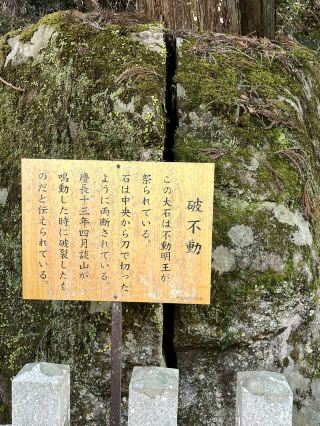 破不動
この大石は不動明王が
祭られている。
石は中央から刀で切った
ように両断されている。
慶長十三年四月談山が
鳴動した時に破裂したも
のだと伝えられている。